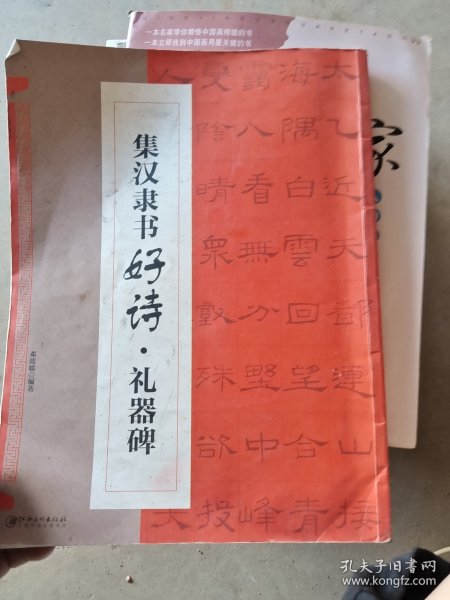 一本名家带你领悟中国画精髓的书
一本立即找到中国画用墨关键的书
家
集汉隶书好诗·礼器碑
编著
太乙近天都連山接
海隅白雲回望合青
靄入看無分野中峰
變陰晴衆壑殊欲投
人
夫
江西美术出版社
孔夫子旧书网
www.kongfz.com